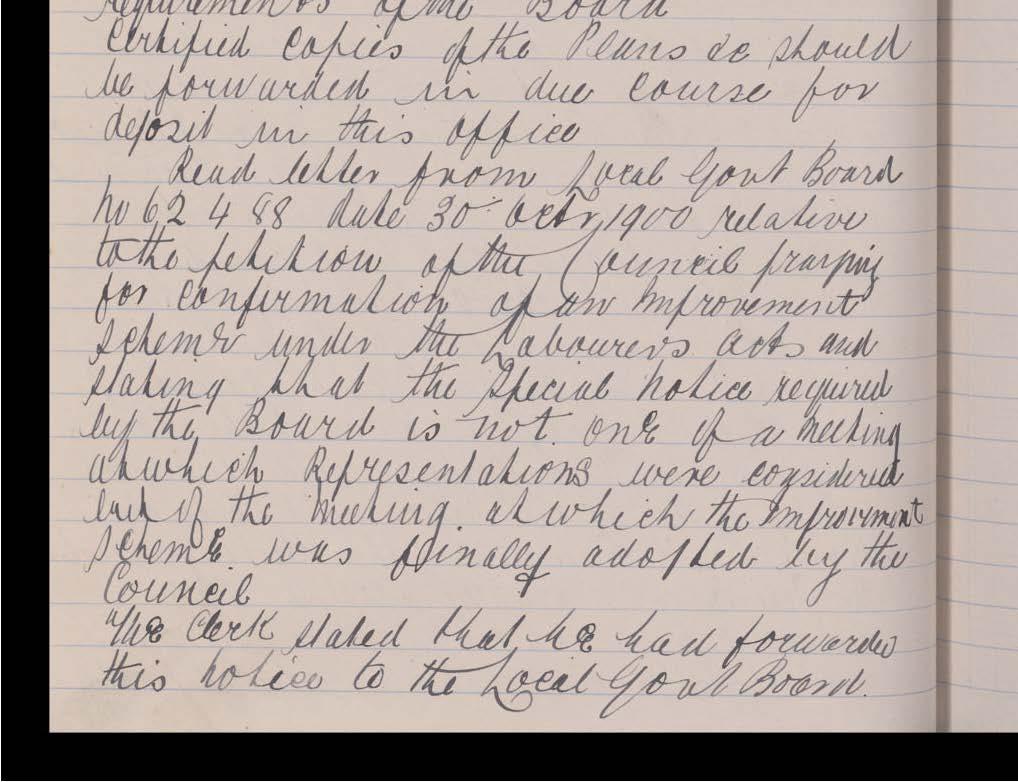 requirements of the Board
Certified Copies of the Plans &c should
be forwarded in due course for
deposit in this office
Read letter from Local Govt Board
No 62 488 date 30 Octr 1900 relative
to the petition of the Council praying
for confirmation of an Improvement
Scheme under the Labourers Acts and
stating that the Special Notice required
by the Board is not one of a Meeting
at which Representations were considered
but of the Meeting at which the Improvement
Scheme was finally adopted by the
Council
The Clerk stated that he had forwarded
this notice to the Local Govt Board.